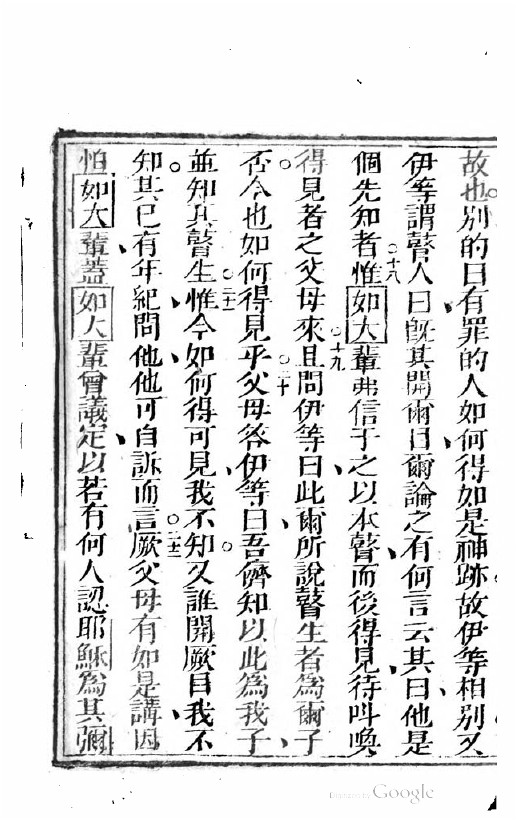 故也別的曰有罪的人如何得如是神跡故伊等相別又
伊等謂瞽人曰旣其開爾目爾論之有何言云其曰他是
十八
個先知者惟如大輩弗信于之以本瞽而後得見待叫喚
十九
得見者之父母來且問伊等曰此爾所說瞽生者為爾子
二十
否今也如何得見乎父母答伊等曰吾儕知以此為我子
二十一
並知其瞽生惟今如何得可見我不知又誰開厥目我不
知其已有年紀問他他可自訴而言厥父母有如是講因
二十二
怕如大輩蓋如大輩曾議定以若有何人認耶穌為其彌
Digitized by Google